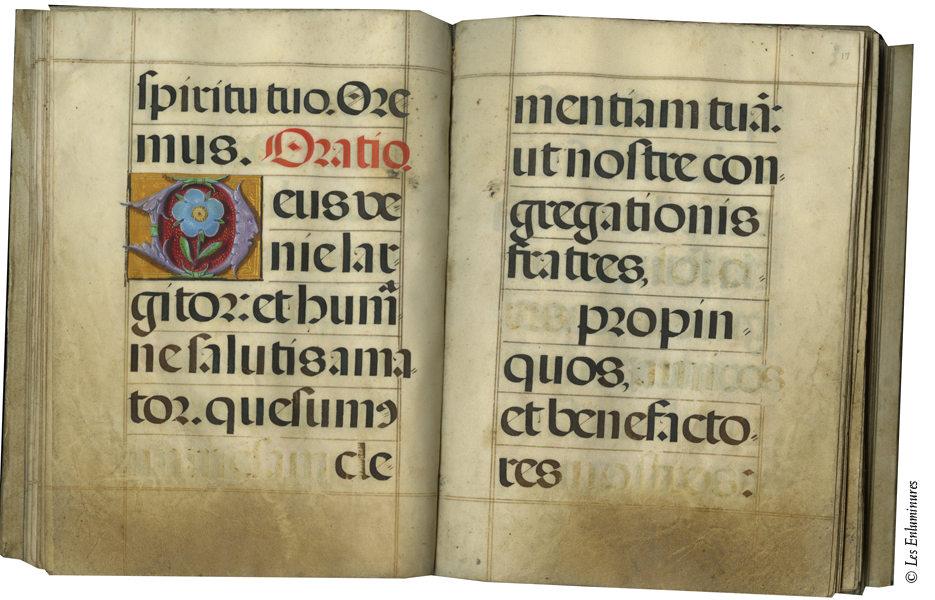 spiritu tuo. Ore
mus. Oratio.
Deus ve
nie lar
gitor: et humā
ne salutis ama
tor. quesumꝰ
cle
17
mentiam tuā:
ut nostre con
gregationis
fratres,
propin
quos,
et benefacto
res :
© Les Enluminures